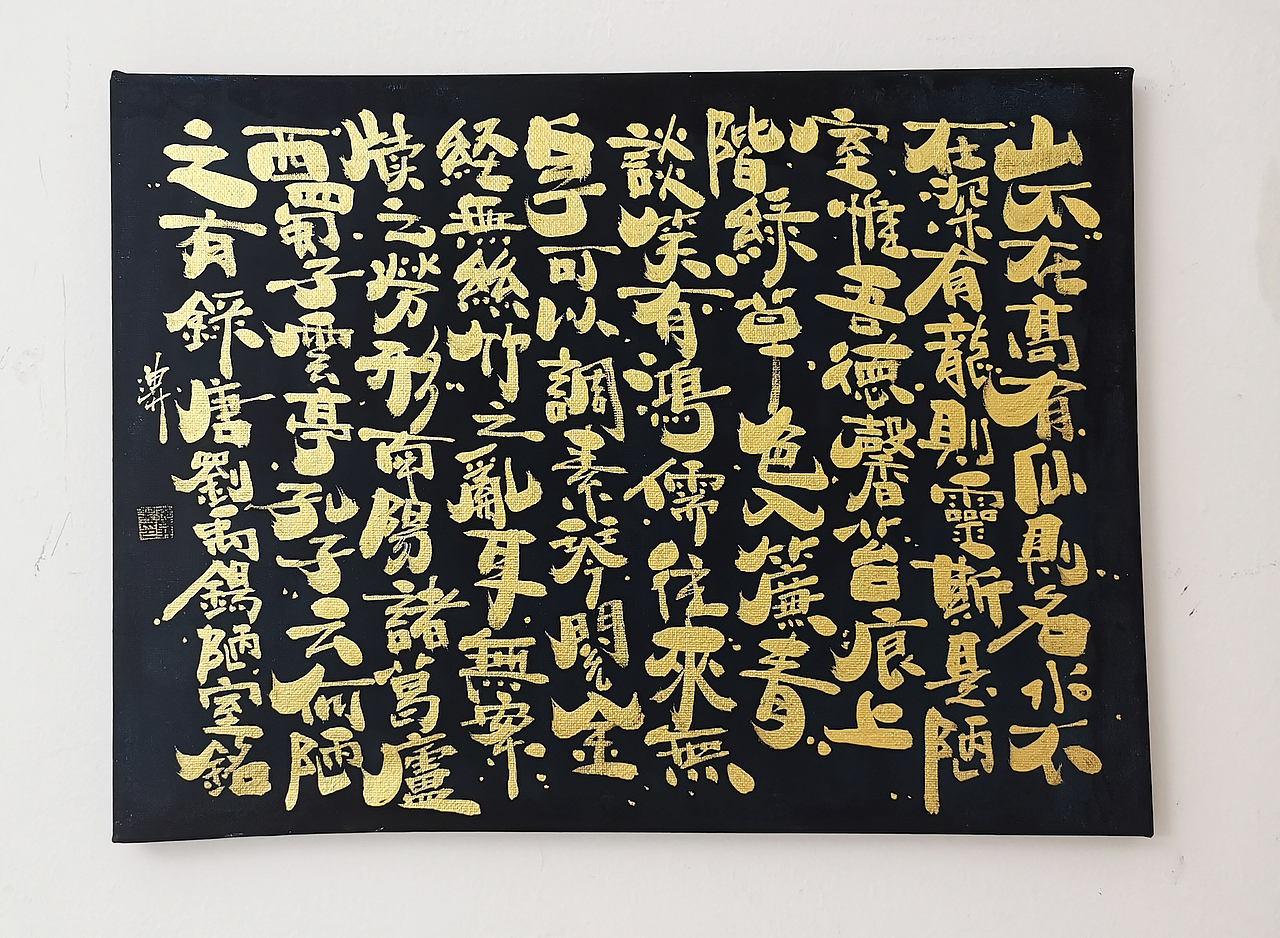 山不在髙有仙則名水不
在深有龍則靈斯是陋
室惟吾德馨苔痕上
階綠草色入簾青
談笑有鴻儒往來無
白丁可以調素琴閱金
経無絲竹之亂耳無案
牘之勞形南陽諸葛廬
西蜀子雲亭孔子云何陋
之有錄唐劉禹錫陋室銘